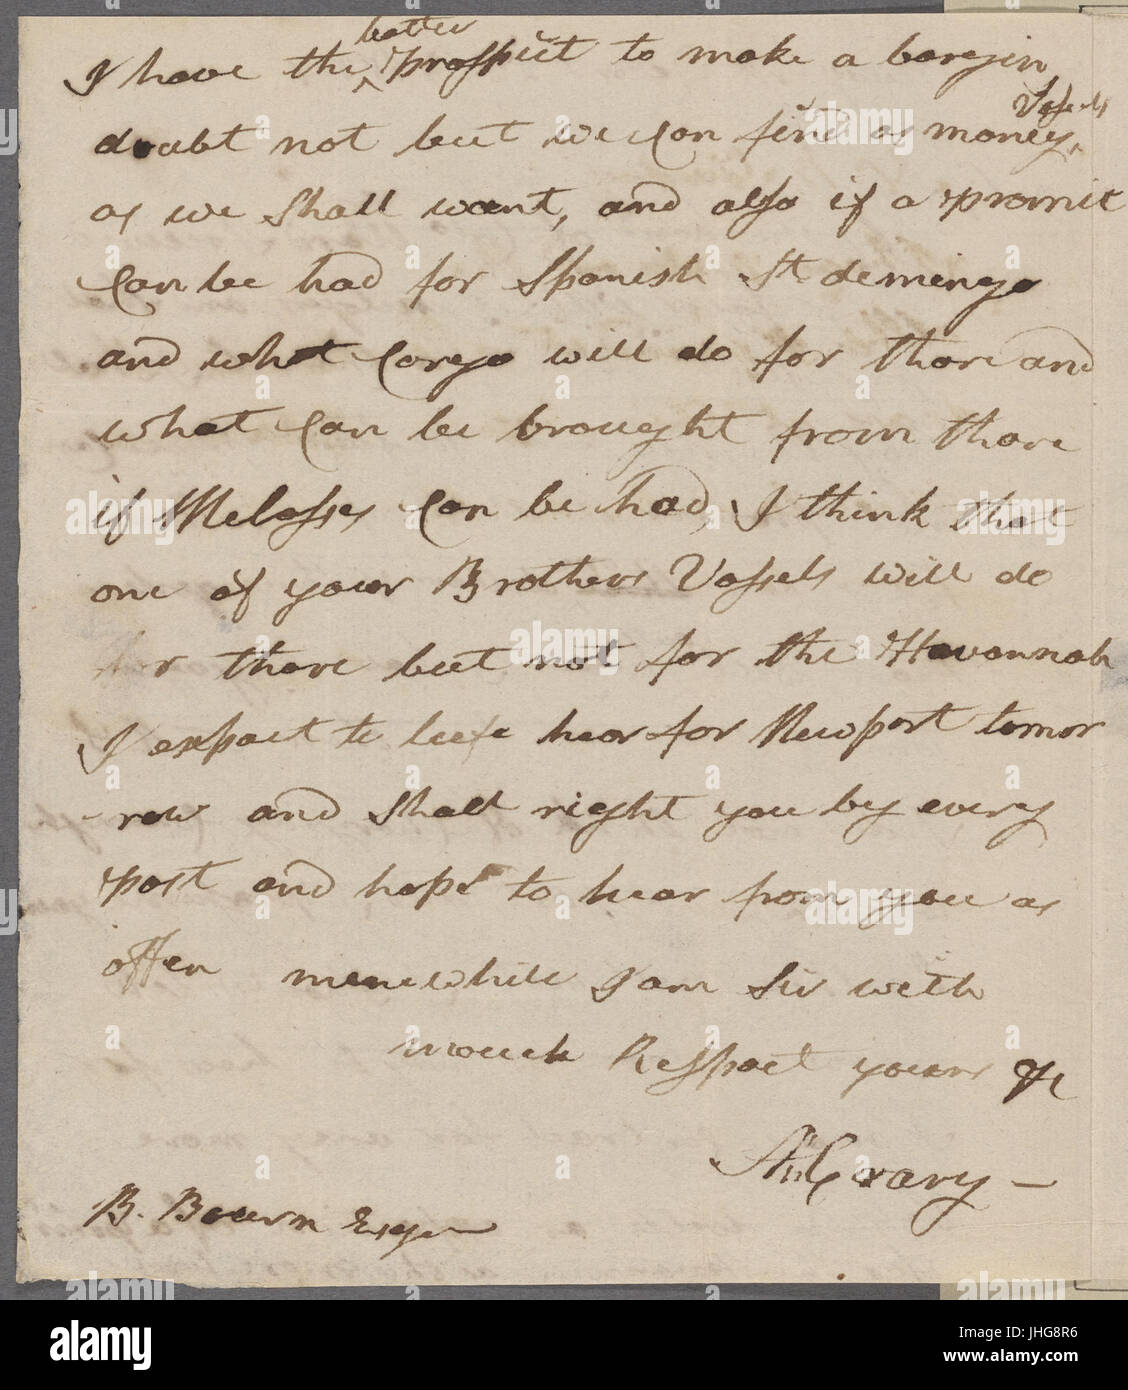 I have the better prospect to make a bargin
doubt not but we Can find as money Vessels
as we Shall want, and also if a promit
Can be had for Spanish St demingo
and what Cargo will do for thare and
what Can be brought from thare
if Melasses Can be had, I think that
one of your Brothers Vassels will do
for thare but not for the Havannah
I expact to hear for Newport tomor
-row and Shall right you by every
post and hope to hear from you as
offen meinewhile I am Sir with
mouch Respact yours &c
B. Bourn Esqr
alamy
Image ID: JHG8R6
www.alamy.com